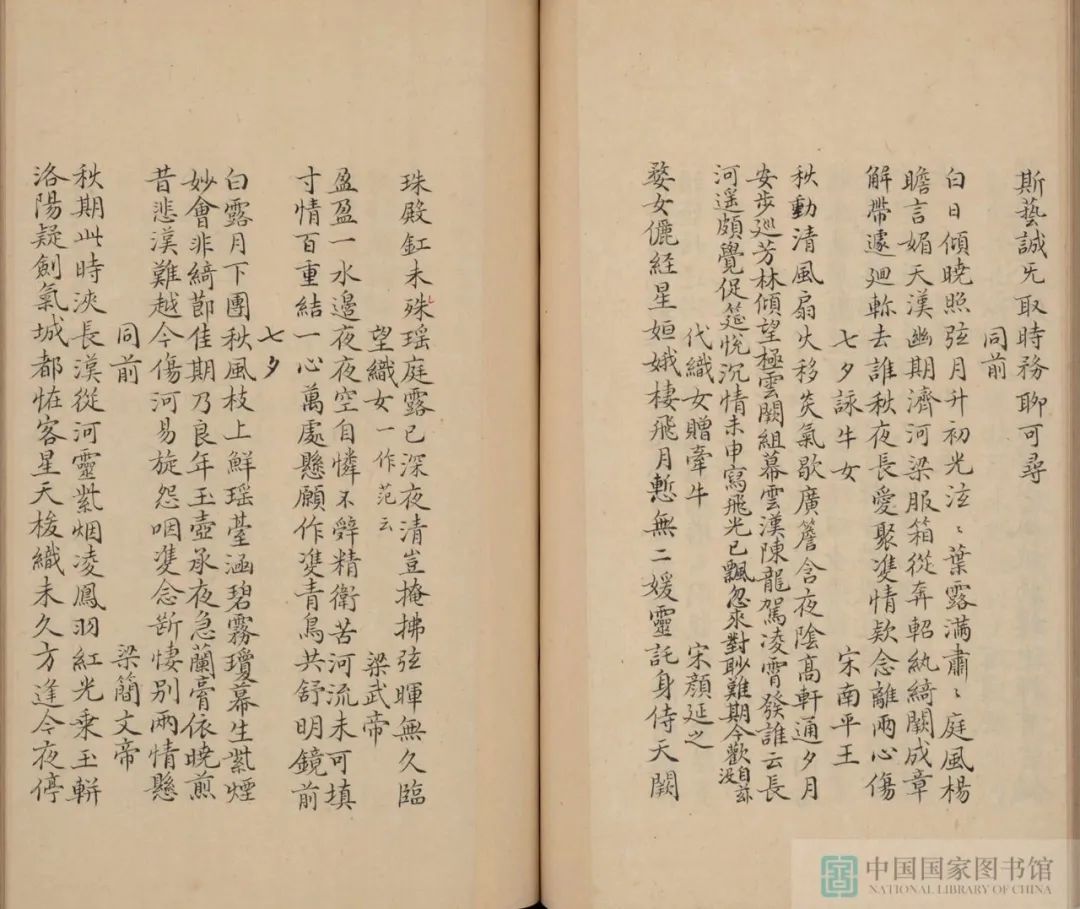 斯藝誠旡取時務聊可尋
同前
白日傾晚照弦月升初光泫〻葉露滿肅〻庭風楊
瞻言媚天漢幽期濟河梁服箱從奔軺紈綺闕成章
解帶遽廻軫去誰秋夜長愛聚雙情欵念離兩心傷
七夕詠牛女 宋南平王
秋動清風扇火移炎氣歇廣簷含夜陰高軒通夕月
安步廵芳林傾望極雲闕組幕雲漢陳龍駕凌霄發誰云長
河遥頗覺促筵悅沉情未申寫飛光已飄忽來對眇難期今歡自茲没
代織女贈牽牛 宋顏延之
婺女儷経星姮娥棲飛月慙無二媛靈託身侍天闕
珠殿釭未殊瑶庭露已深夜清豈掩拂弦暉無久臨
望織女一作范云 梁武帝
盈盈一水邊夜夜空自憐不辤精衛苦河流未可填
寸情百重結一心萬處懸願作雙青鳥共舒明鏡前
七夕
白露月下團秋風枝上鮮瑶臺涵碧霧瓊幕生紫煙
妙會非綺節佳期乃良年玉壺承夜急蘭膏依曉煎
昔悲漢難越今傷河易旋怨咽雙念斷悽別兩情懸
同前 梁簡文帝
秋期此時浹長漢從河靈紫烟凌鳳羽紅光乗玉軿
洛陽疑劍氣城都恠客星天梭織未久方逢今夜停
中国国家图书馆
NATIONAL LIBRARY OF CHINA